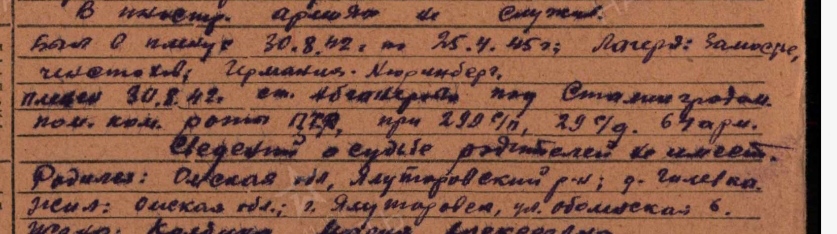 В иностр. армиях не служил.
Был в плену с 30.8.42г. по 25.4.45г; Лагеря: Замостье,
Ченстохов; Германия - Нюрнберг.
Пленен 30.8.42г. ст. Абганерово под Сталинградом.
пом. ком. роты ПТР, при 299 с/п, 29 с/д. 64 арм.
Сведений о судьбе родителей не имеет.
Родился: Омская обл, Ялуторовский р-н; д. Гилевка.
Жил: Омская обл.; г. Ялуторовск, ул. 6.